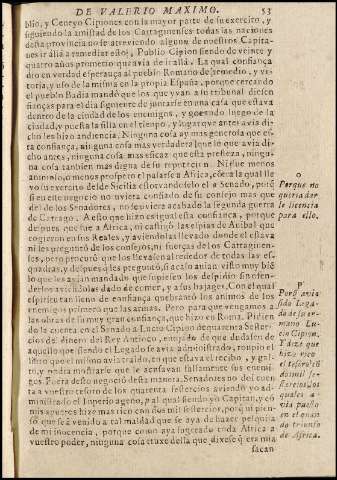 DE VALERIO MAXIMO. 53
blio, y Ceneyo Cipiones con la mayor parte de su exercito, y
siguiendo la amistad de los Cartaginenses todas las naciones
desta provincia no se atreviendo alguno de nuestros Capita-
nes ir allà a remediar esto, Publio Cipion siendo de veinte y
quatro años prometio que avia de ir allà. La qual confiança
dio en verdad esperança al pueblo Romano de remedio, y vic-
toria, y uso de la misma en la propia España, porque cercando
el pueblo Badia mandò que los que yvan a su tribunal diessen
fianças para el dia siguiente de juntarse en una casa que estava
dentro de la ciudad de los enemigos, y ganando luego
ciudad, y puesta la silla en el tiempo, y lugar que antes avia di-
cho les hizo audiencia. Ninguna cosa ay mas generosa que es-
ta confiança, ninguna cosa mas verdadera que lo que avia di-
cho antes, ninguna cosa mas eficaz que esta presteza, ningu-
na cosa tambien mas digna de su reputacion. Ni fue menos
animoso, o menos prospero el passarse a Africa, con la qual lle
vò su exercito de Sicilia estorvandoselo el Senado, porque
si en este negocio no uviera confiado de su consejo mas que
del de los Senadores, no se uviera acabado la segunda guerra
de Cartago. A esto que hizo es igual esta confiança, porque
despues que fue a Africa, ni castigò las espias de Anibal que
cogieron en sus Reales, y aviendolas llevado donde el estava
ni les preguntò de los consejos, ni fuerças de los Cartaginen-
ses, pero procurò que los llevasen al rededor de todas las es-
quadras, y despues que les preguntò si acaso avian visto muy biē
lo que les avian mandado que supiesen los despidio sin ofen-
derlos aviendolos dado de comer, y a sus bajages. Con el qual
espiritu tan lleno de confiança quebrantò los animos de los
enemigos primero que las armas. Pero para que vengamos a
las obras de su muy gran confiança, que hizo en Roma. Pidien
do la cuenta en el Senado a Lucio Cipion de quarenta Sester-
cios de dinero del Rey Antioco, enojado de que dudasen de
aquello que siendo el Legado se avia administrado, rompio el
libro que el mismo avia traido, en que estava el recibo, y gas-
to, y podia mostrarse que le acusavan falsamente sus enemi-
gos. Fuera desto negociò desta manera. Senadores no doi cuen
ta a vuestro tesoro de los quarenta sestercios aviendo yo ad-
ministrado el Imperio ageno, al qual siendo yo Capitan, y cō
mis aueres hize mas rico con dos mil sestercios, porque ni pien-
so que se à venido a tal maldad que se aya de hazer pesquisa
de mi inocencia, porque como aya sugetado toda Africa a
vuestro poder, ninguna cosa truxe della que dixese que era mia
sacan
o
Porque no
queria dar
le licencia
para ello.
P
Porque avia
sido Lega-
do de su er-
mano Lu-
cio Cipion.
Y dize que
hizo rico
el tesoro cō
dos mil se-
stercios, los
quales a-
via puesto
en el quan
do triunfo
de Africa.